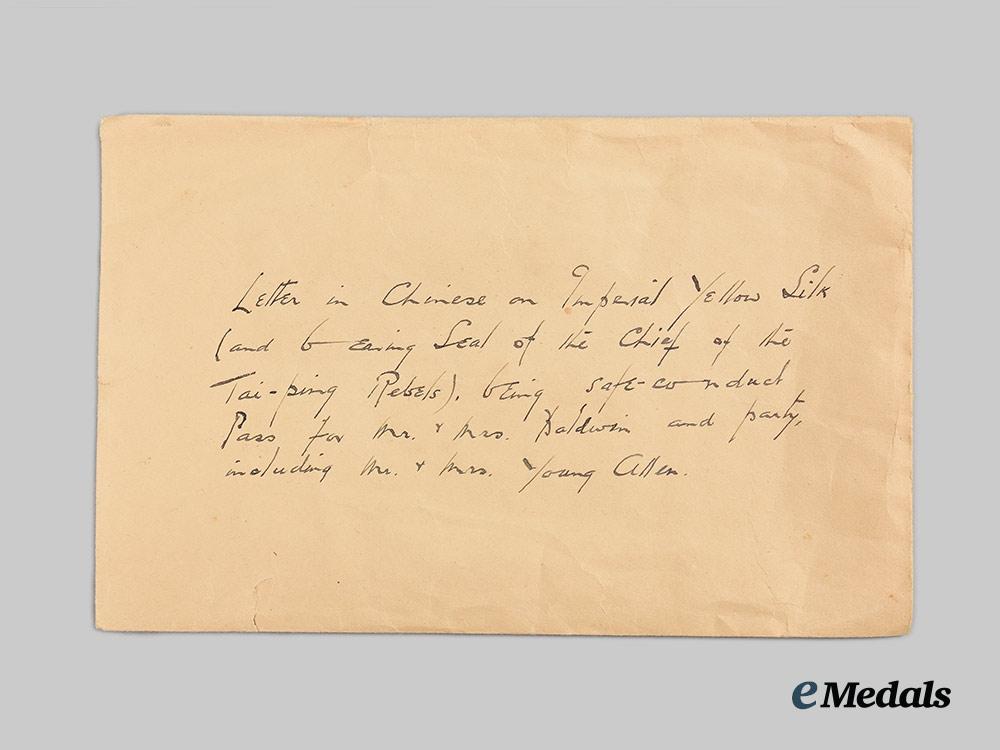 Letter in Chinese on Imperial Yellow Silk
(and bearing Seal of the Chief of the
Tai-ping Rebels), being safe-conduct
Pass for Mr. & Mrs. Baldwin and party,
including Mr. & Mrs. Young Allen.
eMedals